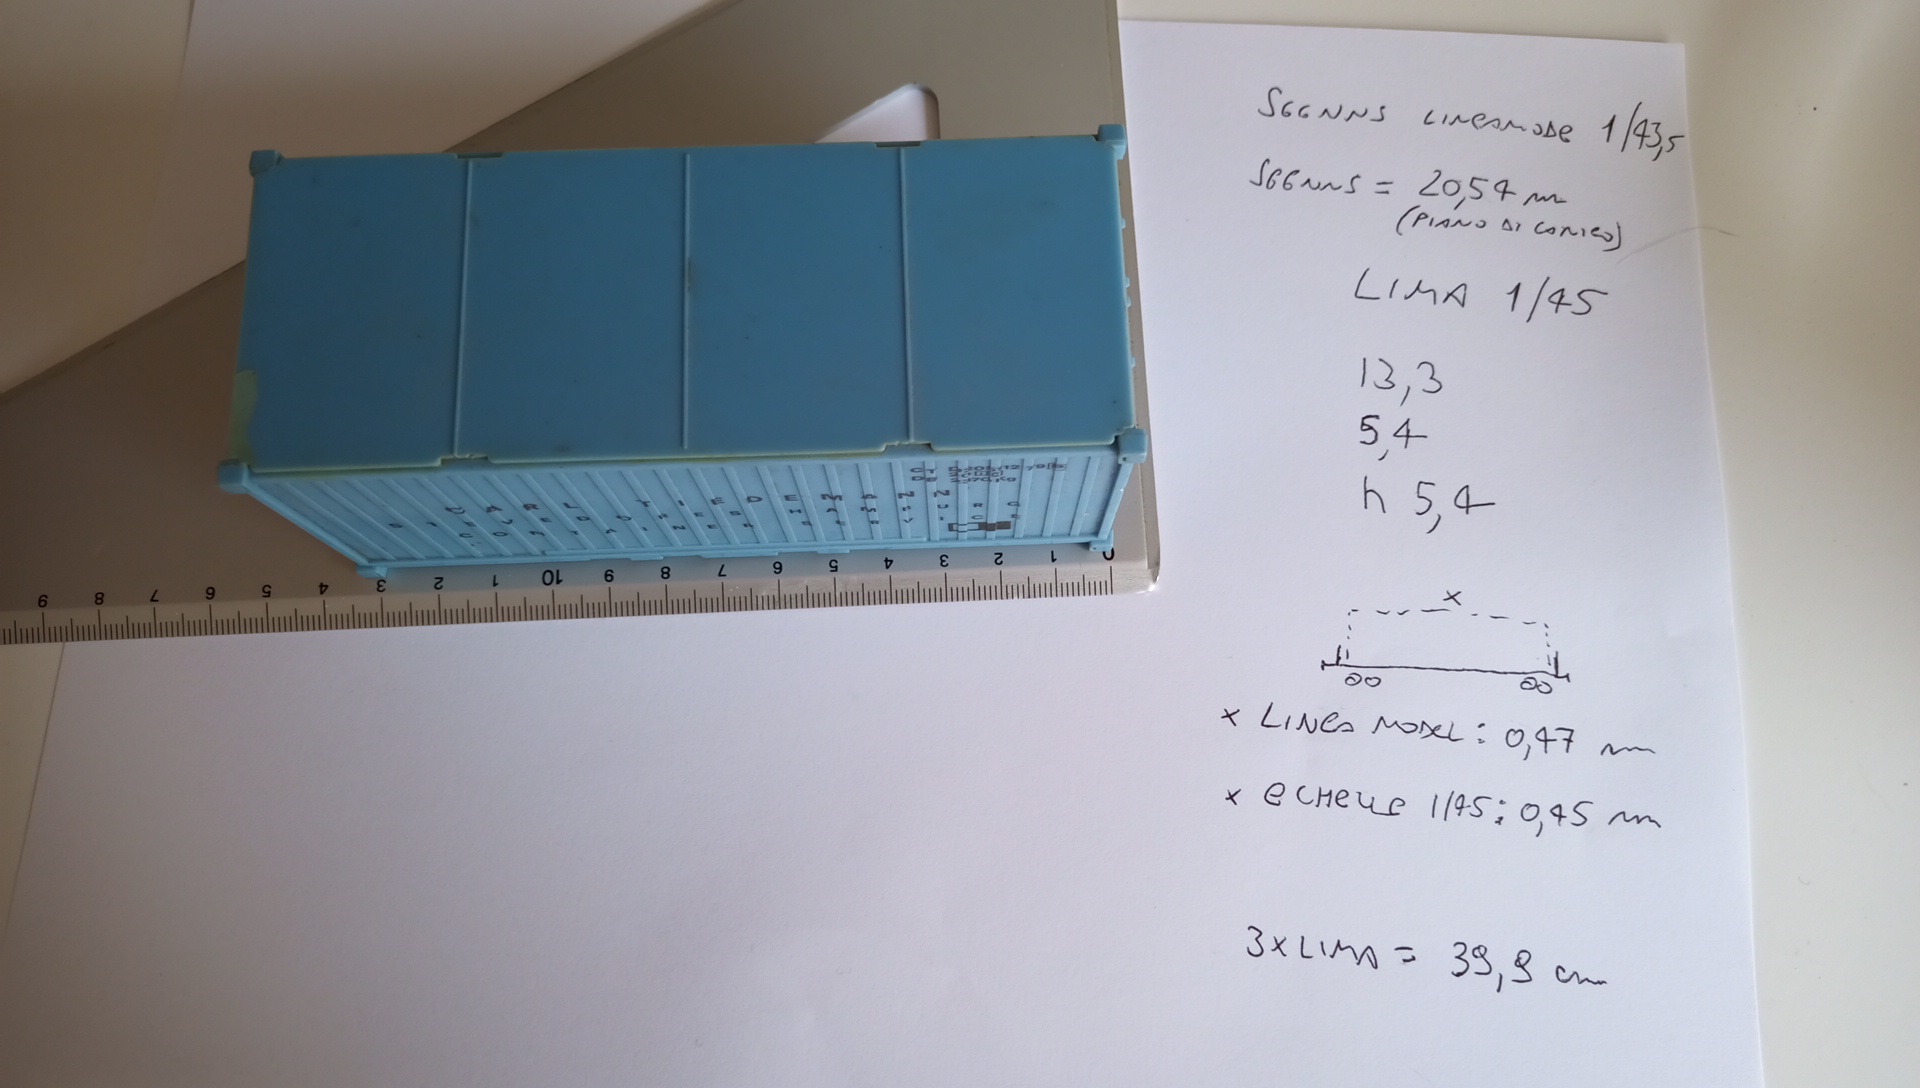 SGGNNS LINEAMODEL 1/43,5
SGGNNS = 20,54 m
(PIANO DI CARICO)
LIMA 1/45
13,3
5,4
h 5,4
x
x LINEA MODEL: 0,47 m
x ECHELLE 1/45: 0,45 m
3 x LIMA = 39,9 cm
CARL TIEDEMANN
9 8 7 6 5 4 3 2 1 10 9 8 7 6 5 4 3 2 1 0